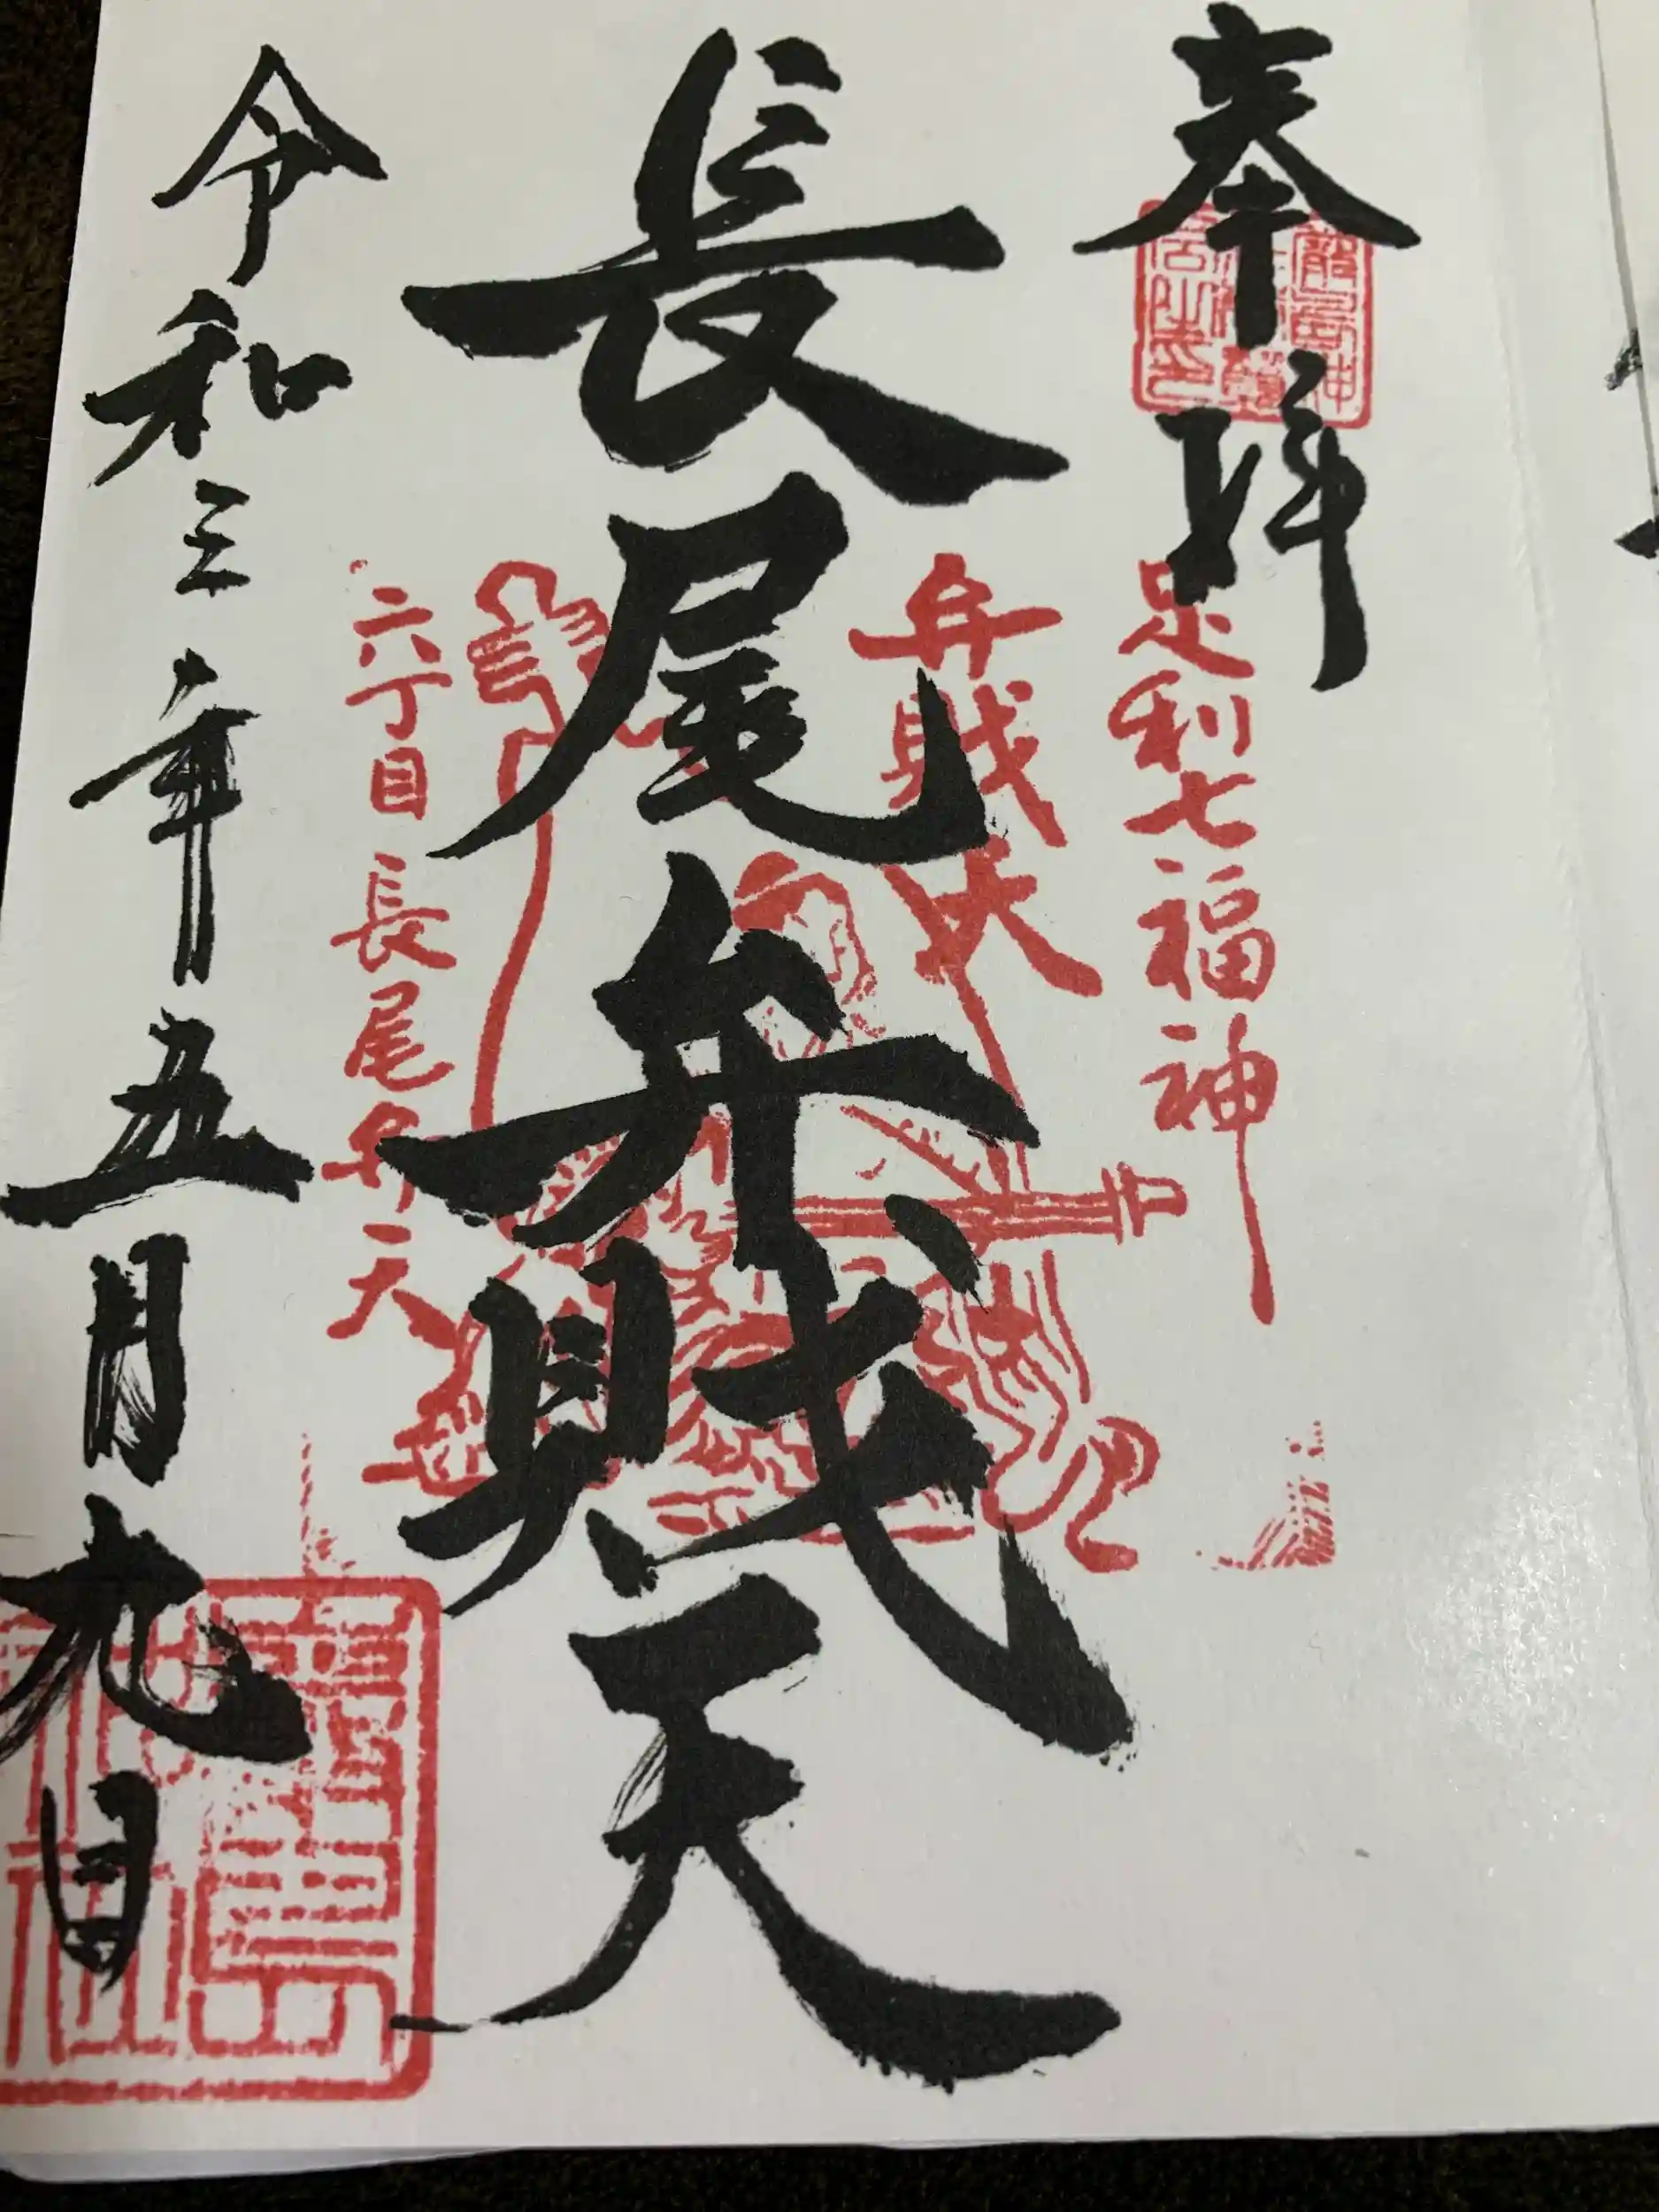 奉拝
足利七福神
弁財天
長尾弁財天
六丁目 長尾弁天
令和三年五月九日